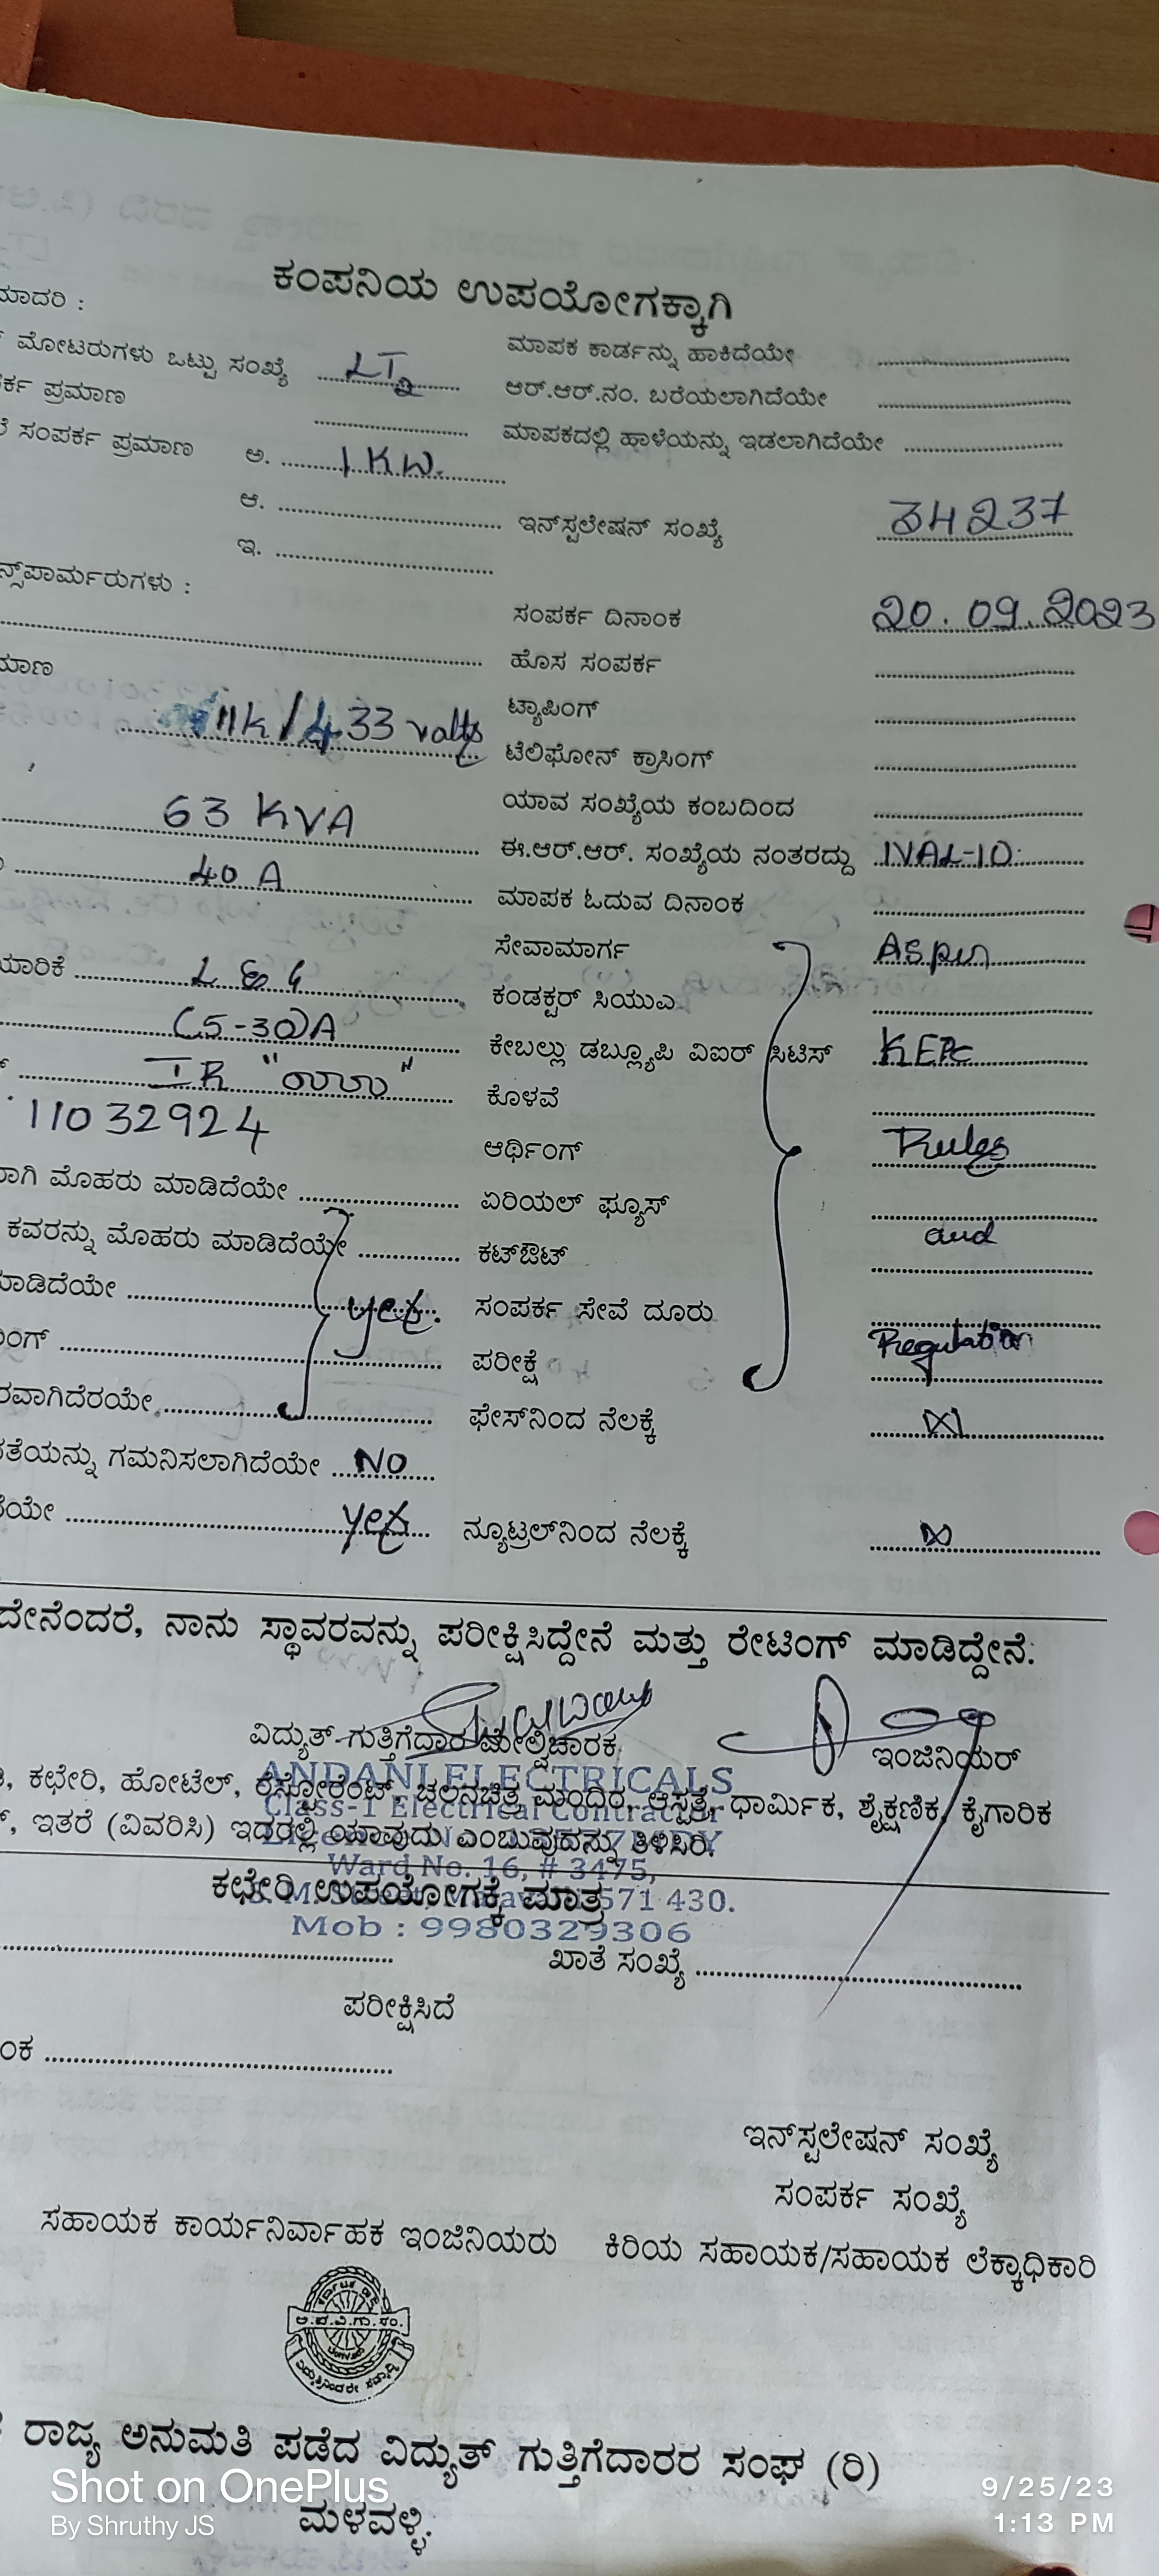 ಕಂಪನಿಯ ಉಪಯೋಗಕ್ಕಾಗಿ
ಮಾದರಿ :
ಮೋಟರುಗಳು ಒಟ್ಟು ಸಂಖ್ಯೆ LT2 ಮಾಪಕ ಕಾರ್ಡನ್ನು ಹಾಕಿದೆಯೇ
ಪ್ರಮಾಣ ಆರ್.ಆರ್.ನಂ. ಬರೆಯಲಾಗಿದೆಯೇ
ಸಂಪರ್ಕ ಪ್ರಮಾಣ ಅ. 1 KW. ಮಾಪಕದಲ್ಲಿ ಹಾಳೆಯನ್ನು ಇಡಲಾಗಿದೆಯೇ
ಆ. ಇನ್‌ಸ್ಟಲೇಷನ್ ಸಂಖ್ಯೆ 34237
ಇ.
ನ್ಸ್‌ಪಾರ್ಮರುಗಳು :
ಸಂಪರ್ಕ ದಿನಾಂಕ 20.09.2023
ಹೊಸ ಸಂಪರ್ಕ
11k/433 volts ಟ್ಯಾಪಿಂಗ್
ಟೆಲಿಫೋನ್ ಕ್ರಾಸಿಂಗ್
63 KVA ಯಾವ ಸಂಖ್ಯೆಯ ಕಂಬದಿಂದ
ಈ.ಆರ್.ಆರ್. ಸಂಖ್ಯೆಯ ನಂತರದ್ದು
40 A ಮಾಪಕ ಓದುವ ದಿನಾಂಕ
ಸೇವಾಮಾರ್ಗ As per
ಯಾರಿಕೆ L & G ಕಂಡಕ್ಟರ್ ಸಿಯುಎ
(5-30)A ಕೇಬಲ್ಲು ಡಬ್ಲ್ಯೂಪಿ ವಿಐರ್ ಸಿಟಿಸ್ KERC
IR ಕೊಳವೆ
11032924 ಆರ್ಥಿಂಗ್ Rules
ಾಗಿ ಮೊಹರು ಮಾಡಿದೆಯೇ ಏರಿಯಲ್ ಫ್ಯೂಸ್
ಕವರನ್ನು ಮೊಹರು ಮಾಡಿದೆಯೇ ಕಟ್‌ಔಟ್ and
ಮಾಡಿದೆಯೇ yes. ಸಂಪರ್ಕ ಸೇವೆ ದೂರು
ಿಂಗ್ ಪರೀಕ್ಷೆ Regulation
ರವಾಗಿದೆರಯೇ ಫೇಸ್‌ನಿಂದ ನೆಲಕ್ಕೆ
ತೆಯನ್ನು ಗಮನಿಸಲಾಗಿದೆಯೇ NO
ೆಯೇ yes ನ್ಯೂಟ್ರಲ್‌ನಿಂದ ನೆಲಕ್ಕೆ
ದೇನೆಂದರೆ, ನಾನು ಸ್ಥಾವರವನ್ನು ಪರೀಕ್ಷಿಸಿದ್ದೇನೆ ಮತ್ತು ರೇಟಿಂಗ್ ಮಾಡಿದ್ದೇನೆ:
ವಿದ್ಯುತ್-ಗುತ್ತಿಗೆದಾರ ಮೇಲ್ವಿಚಾರಕ ಇಂಜಿನಿಯರ್
ANDANI ELECTRICALS
ಕಛೇರಿ, ಹೋಟೆಲ್, ರೆಸ್ಟೋರೆಂಟ್, ಚಲನಚಿತ್ರ ಮಂದಿರ, ಆಸ್ಪತ್ರೆ, ಧಾರ್ಮಿಕ, ಶೈಕ್ಷಣಿಕ, ಕೈಗಾರಿಕ
Class-1 Electrical Contractor
ಇತರೆ (ವಿವರಿಸಿ) ಇದರಲ್ಲಿ ಯಾವುದು ಎಂಬುವುದನ್ನು ತಿಳಿಸಿರಿ.
Ward No. 16, # 3475,
ಕಛೇರಿ ಉಪಯೋಗಕ್ಕೆ ಮಾತ್ರ
571 430.
Mob : 9980329306
ಖಾತೆ ಸಂಖ್ಯೆ
ಪರೀಕ್ಷಿಸಿದೆ
ಂಕ
ಇನ್‌ಸ್ಟಲೇಷನ್ ಸಂಖ್ಯೆ
ಸಂಪರ್ಕ ಸಂಖ್ಯೆ
ಸಹಾಯಕ ಕಾರ್ಯನಿರ್ವಾಹಕ ಇಂಜಿನಿಯರು ಕಿರಿಯ ಸಹಾಯಕ/ಸಹಾಯಕ ಲೆಕ್ಕಾಧಿಕಾರಿ
ಅ.ಪ.ವಿ.ಗು.ಸಂ.
ರಾಜ್ಯ ಅನುಮತಿ ಪಡೆದ ವಿದ್ಯುತ್ ಗುತ್ತಿಗೆದಾರರ ಸಂಘ (ರಿ)
ಮಳವಳ್ಳಿ.
Shot on OnePlus
By Shruthy JS
9/25/23
1:13 PM